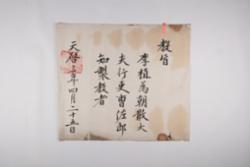 教旨
李植為朝散大
夫行吏曹佐郎
知製教者
天啓三年四月二十五日